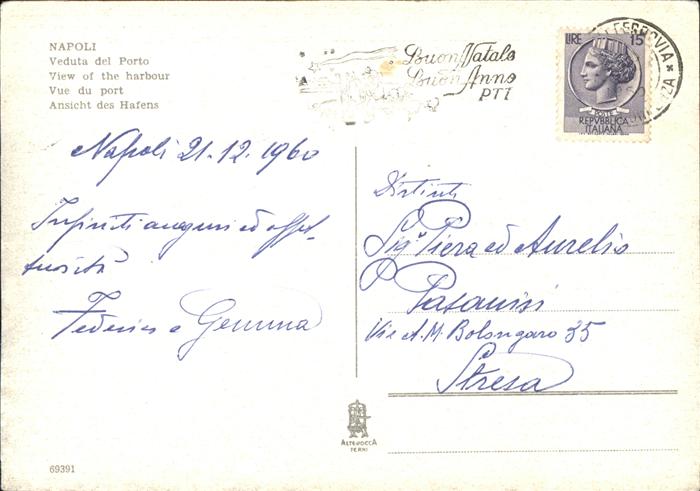 NAPOLI
Veduta del Porto
View of the harbour
Vue du port
Ansicht des Hafens
Buon Natale
Buon Anno
PTT
LIRE 15
POSTE
REPVBBLICA
ITALIANA
Napoli 21-12-1960
Infiniti auguri ed affet-
tuosità
Federico e Gemma
Distinti
Sig.ri Piera ed Aurelio
Via A.M. Bolongaro 35
Stresa
ALTEROCCA
TERNI
69391